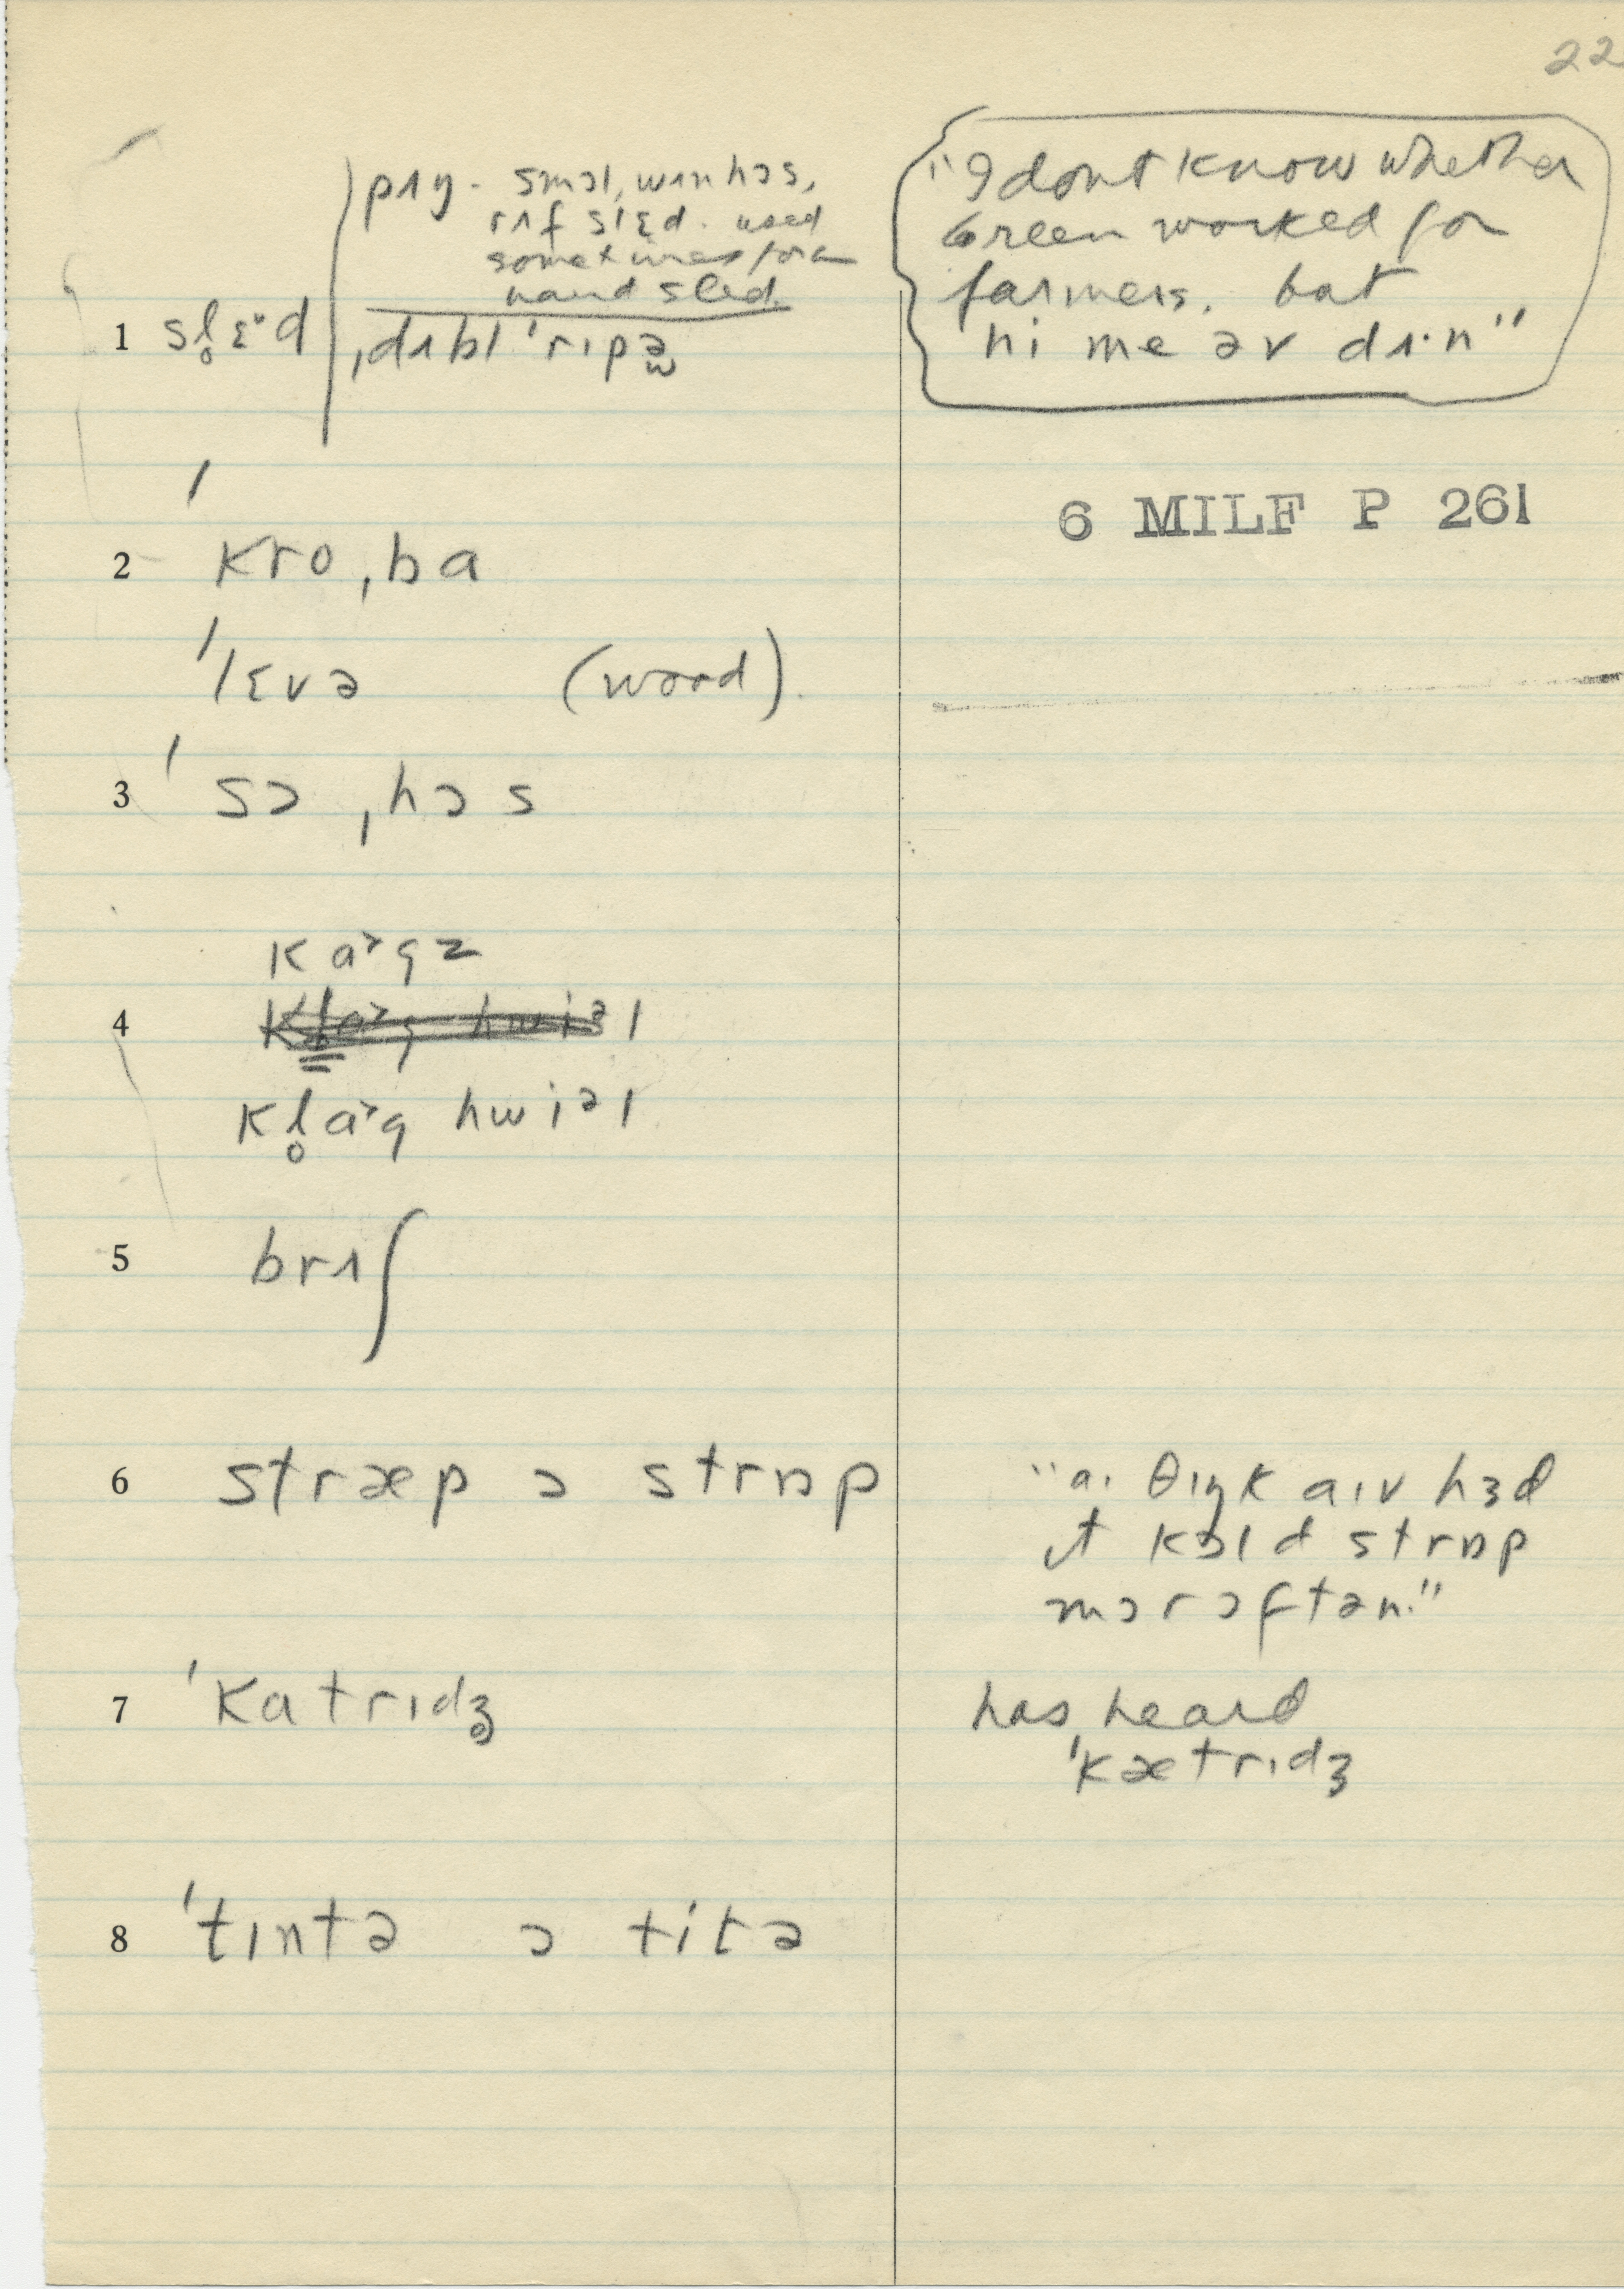 22
pɪŋ - smɔl, wʌn hɔs,
rʌf slɛd. used
sometimes for a
hand sled.
1 sl̥ɛˑd ˌdʌbl ˈrɪpə
"I dont know whether
Green worked for
farmers, but
"hi me əv dʌˑn"
6 MILF P 261
2 ˈkroˌba
ˈlɛvə (word).
3 ˈsɔˌhɔs
ka˃gz
4
kl̥a˃g hwiəl
5 brʌʃ
6 stræp ɔ strɒp
"aɪ θɪŋk aɪv hɜd
ɪt kɔld strɒp
mɔr ɔftən."
7 ˈkatrɪdʒ̥
has heard
ˈkætrɪdʒ
8 ˈtɪntə ɔ titə